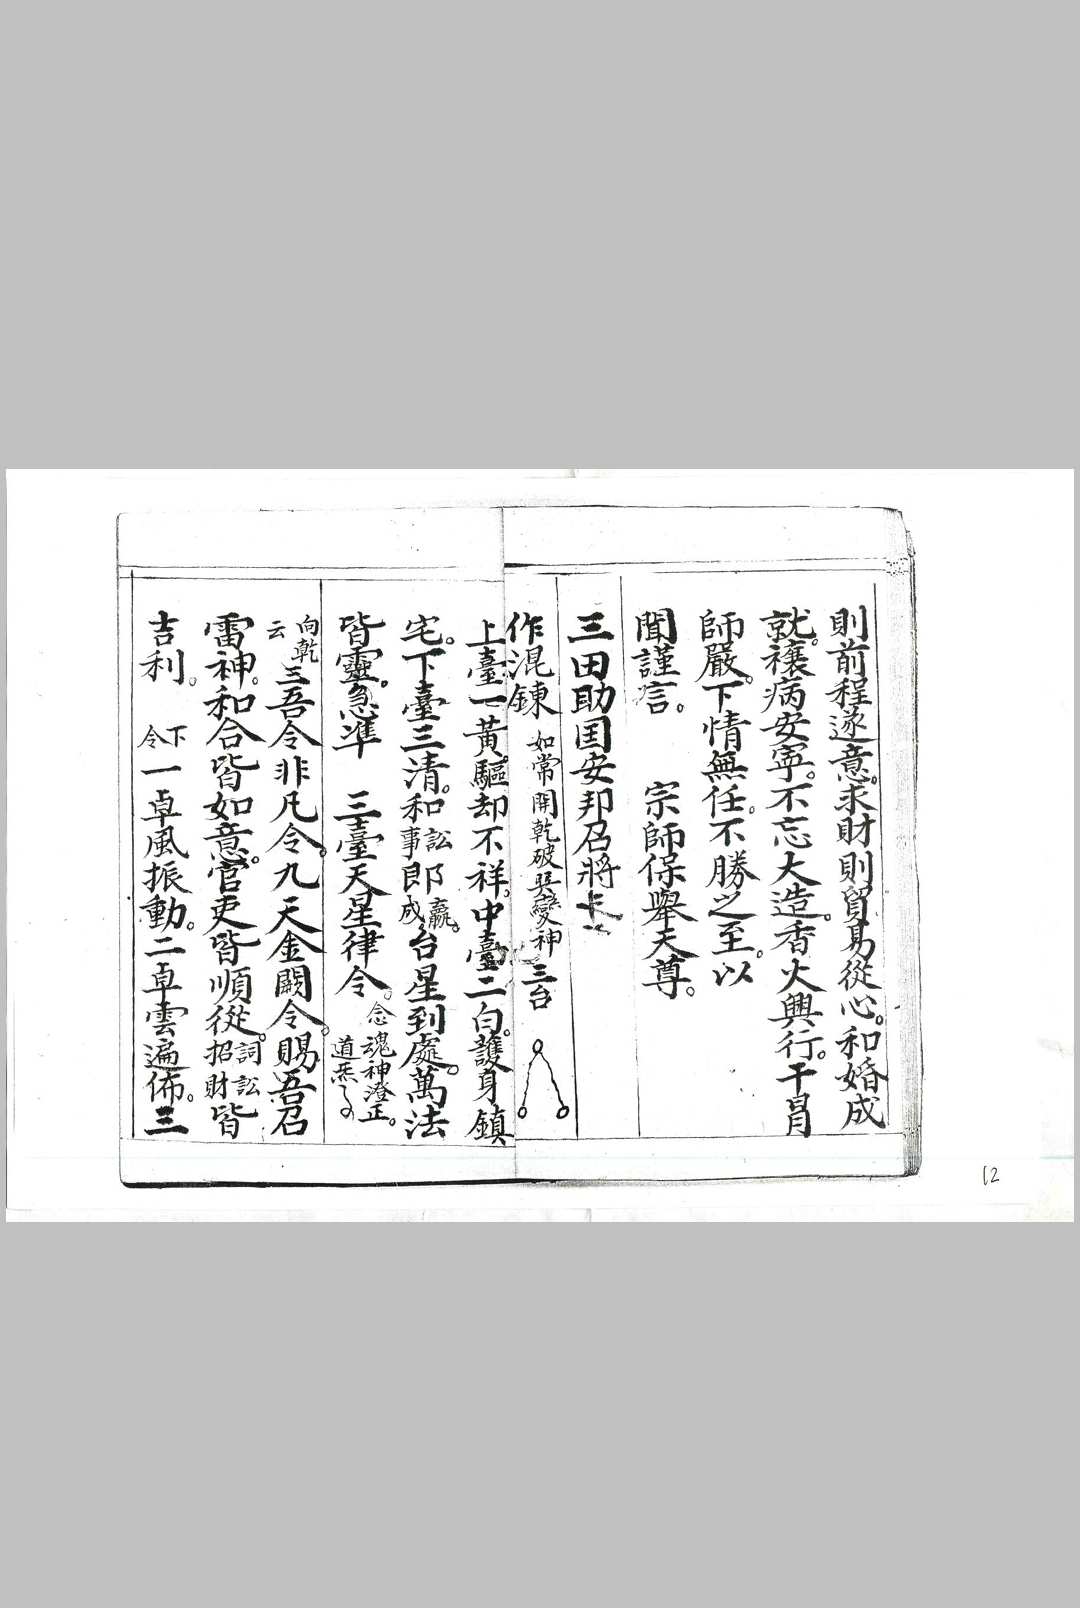 則前程遂意。求財則貿易從心。和婚成
就。禳病安寧。不忘大造。香火興行。干冒
師嚴。下情無任。不勝之至。以
聞謹言。　宗師保舉天尊。
三田助国安邦召將
作混鍊 如常開乾破巽變神 三台
上臺一黃。驅却不祥。中臺二白。護身鎮
宅。下臺三清。和訟事郎贏成。台星到處。萬法
皆靈。急準　三臺天星律令。念魂神澄正。道炁
向乾云 三吾令非凡令。九天金闕令。賜吾召
雷神。和合皆如意。官吏皆順從。詞訟招財皆
吉利。下令 一卓風振動。二卓雲遍佈。三
12